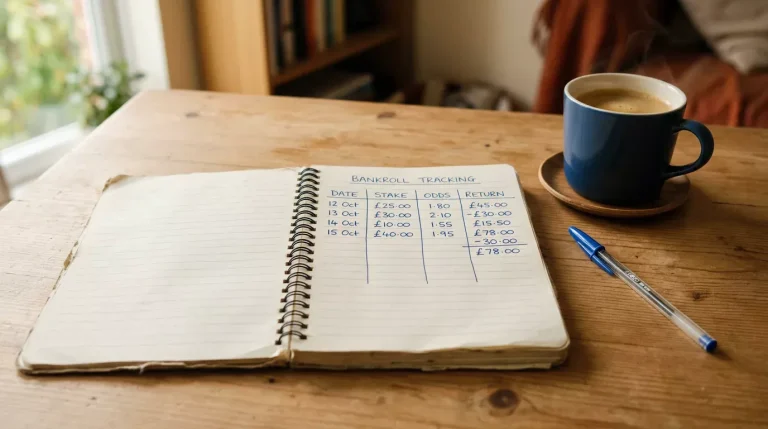 BANKROLL TRACKING
DATE STAKE ODDS RETURN
12 Oct £25.00 1.80 £45.00
13 Oct £30.00 2.10 -£30.00
14 Oct £10.00 1.55 £15.50
15 Oct £40.00 1.95 £78.00
-30.00
£78.00